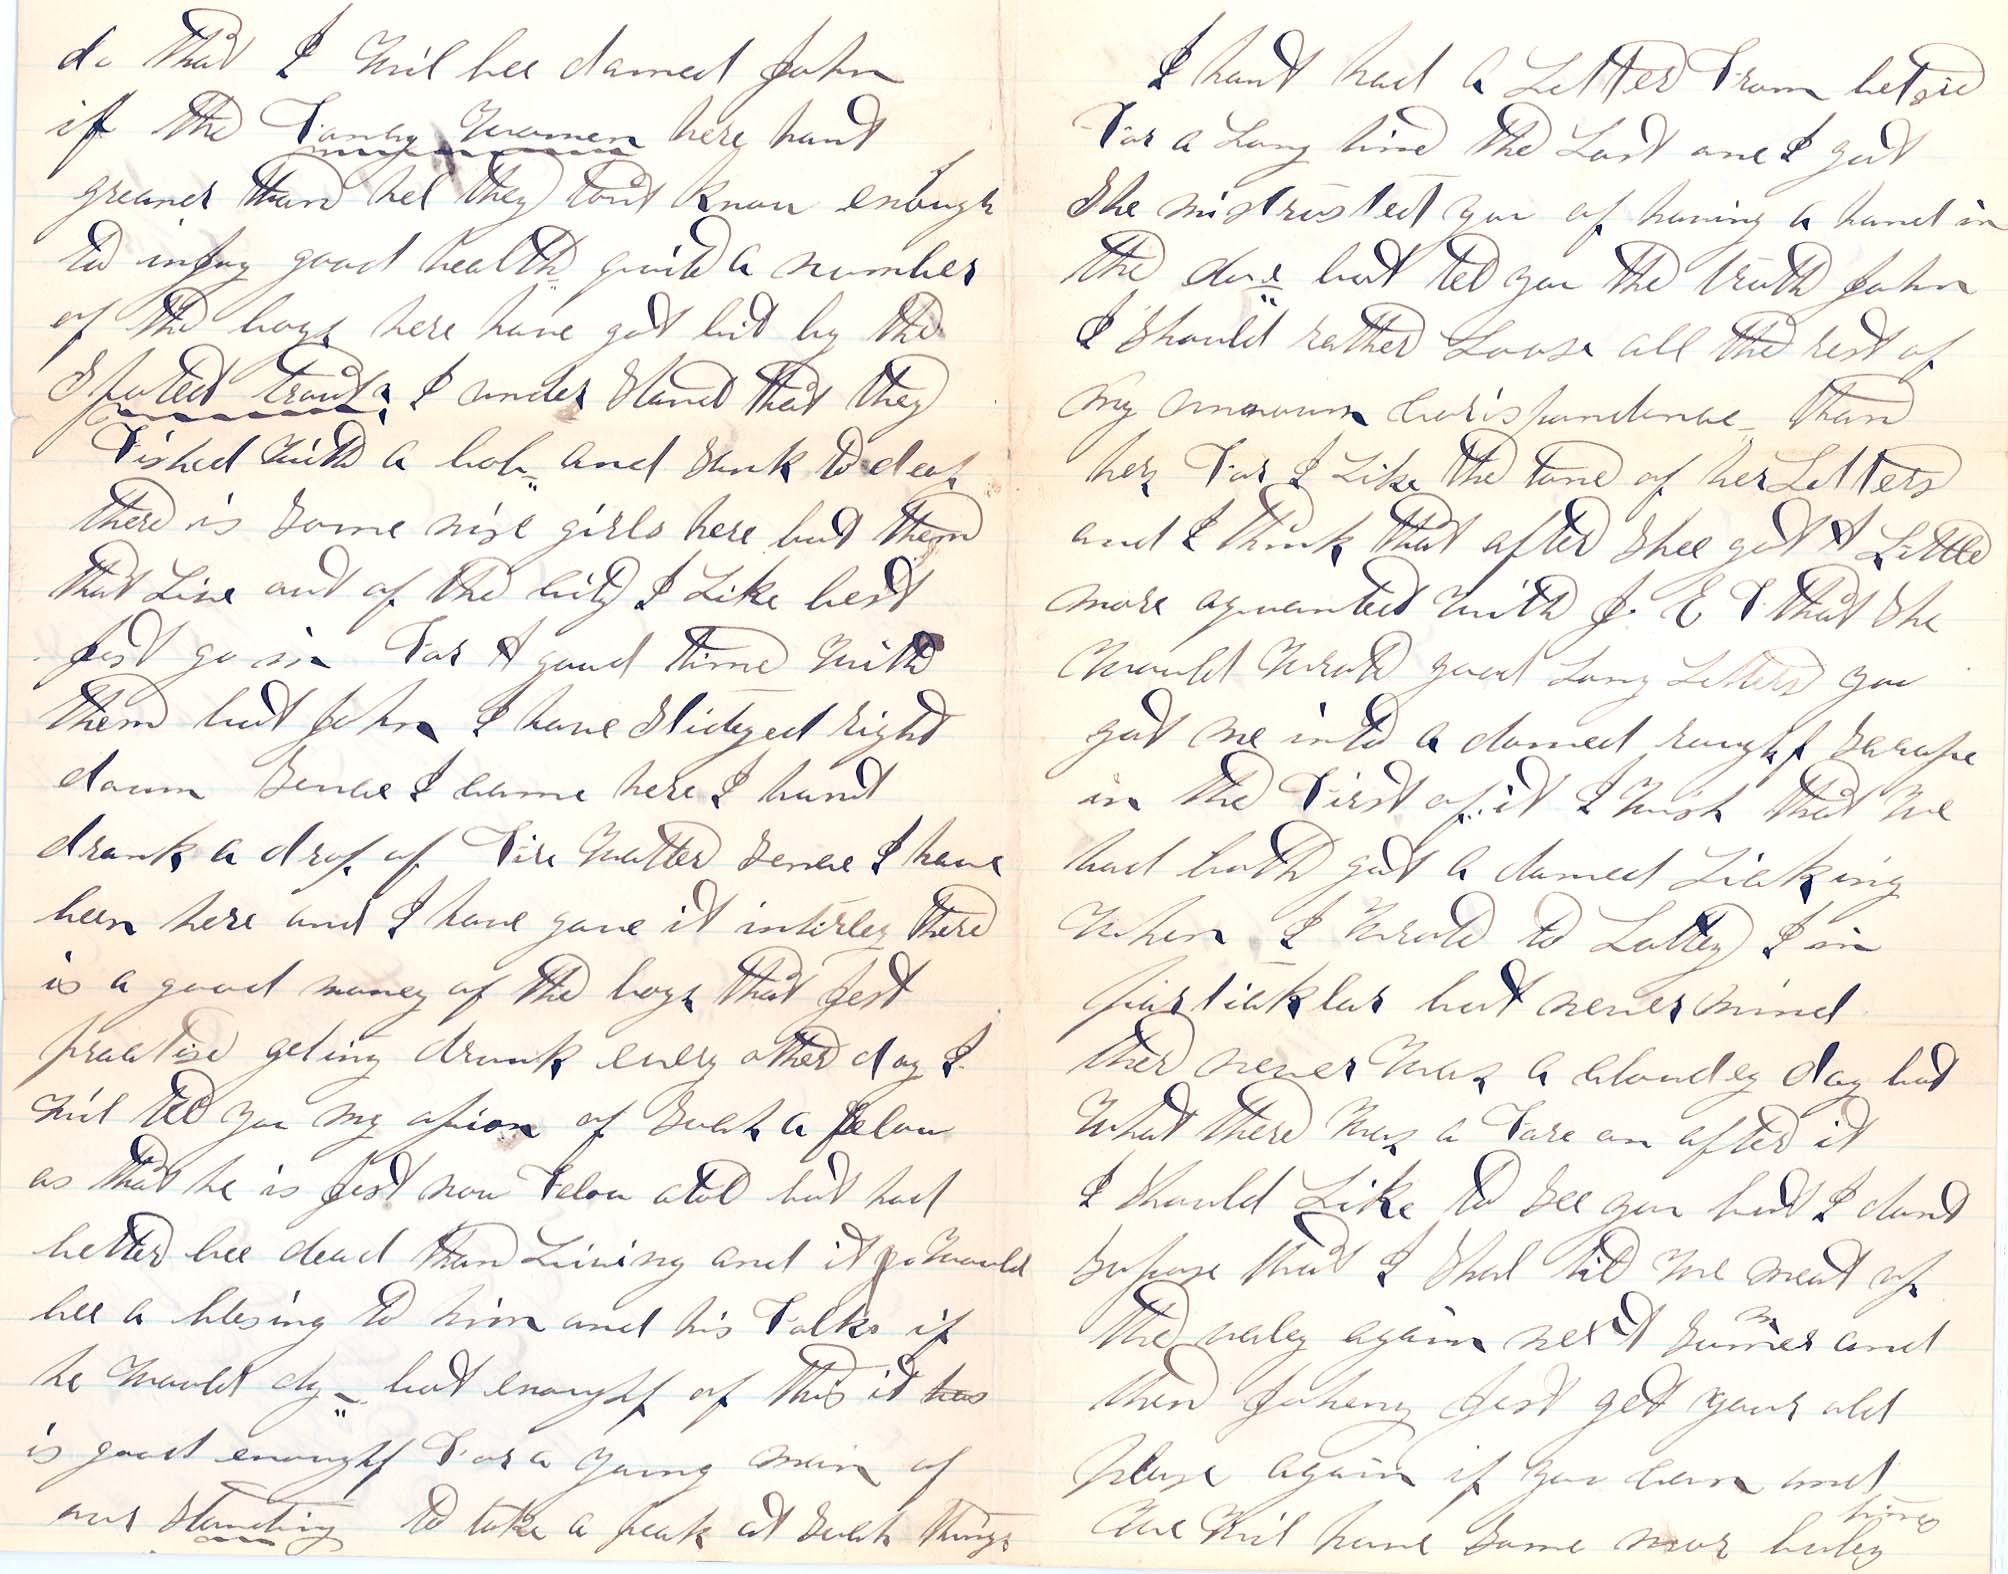 do that I wil bee damed John
if the Fancy Wumen here hant
greaner than hel they don't know enough
to injoy good health quite a number
of the boys here have got bit by the
Spoted trouts I under Stand that they
Fished with a bob and sunk to deap
there is some nise girls here but them
that Live out of the city I Like best
jest go in For A good time with
them but John I have Stidyed right
down sence I came here I hant
drank a drop of Fire Watter sence I have
been here and I have gave it intirley there
is a good maney of the boys that jest
practise geting drunk every other day I
wil tel you my opion of such a felow
as that he is jest now Felow atol but had
better bee dead than Living and it would
bee a blesing to him and his Folks if
he would dy but enoughf of this it has
is good enoughf For a young man of
our Standing to take a peak at such things
I hant had A Letter From betsie
For a Long time the Last one I got
She mistrusted you of having a hand in
the but tel you the truth John
I Should rather Loose all the rest of
my unnown Corispondence than
her For I Like the tone of her Letters
and I think that after Shee got A Little
more aquanted with J. E T that She
would write good Long Letters you
got me into a damed roughf Scrape
in the First of it I wish that we
had both got a damed Licking
when I wrote to Lottey I in
particklar but never mind
ther never was a cloudey day but
what there was a Fare on after it
I Should Like to See you but I dont
supose that I Shal til we meat up
the valey again next Summer and
then Johney jest get your old
place again if you can and
we wil have some mor buley times